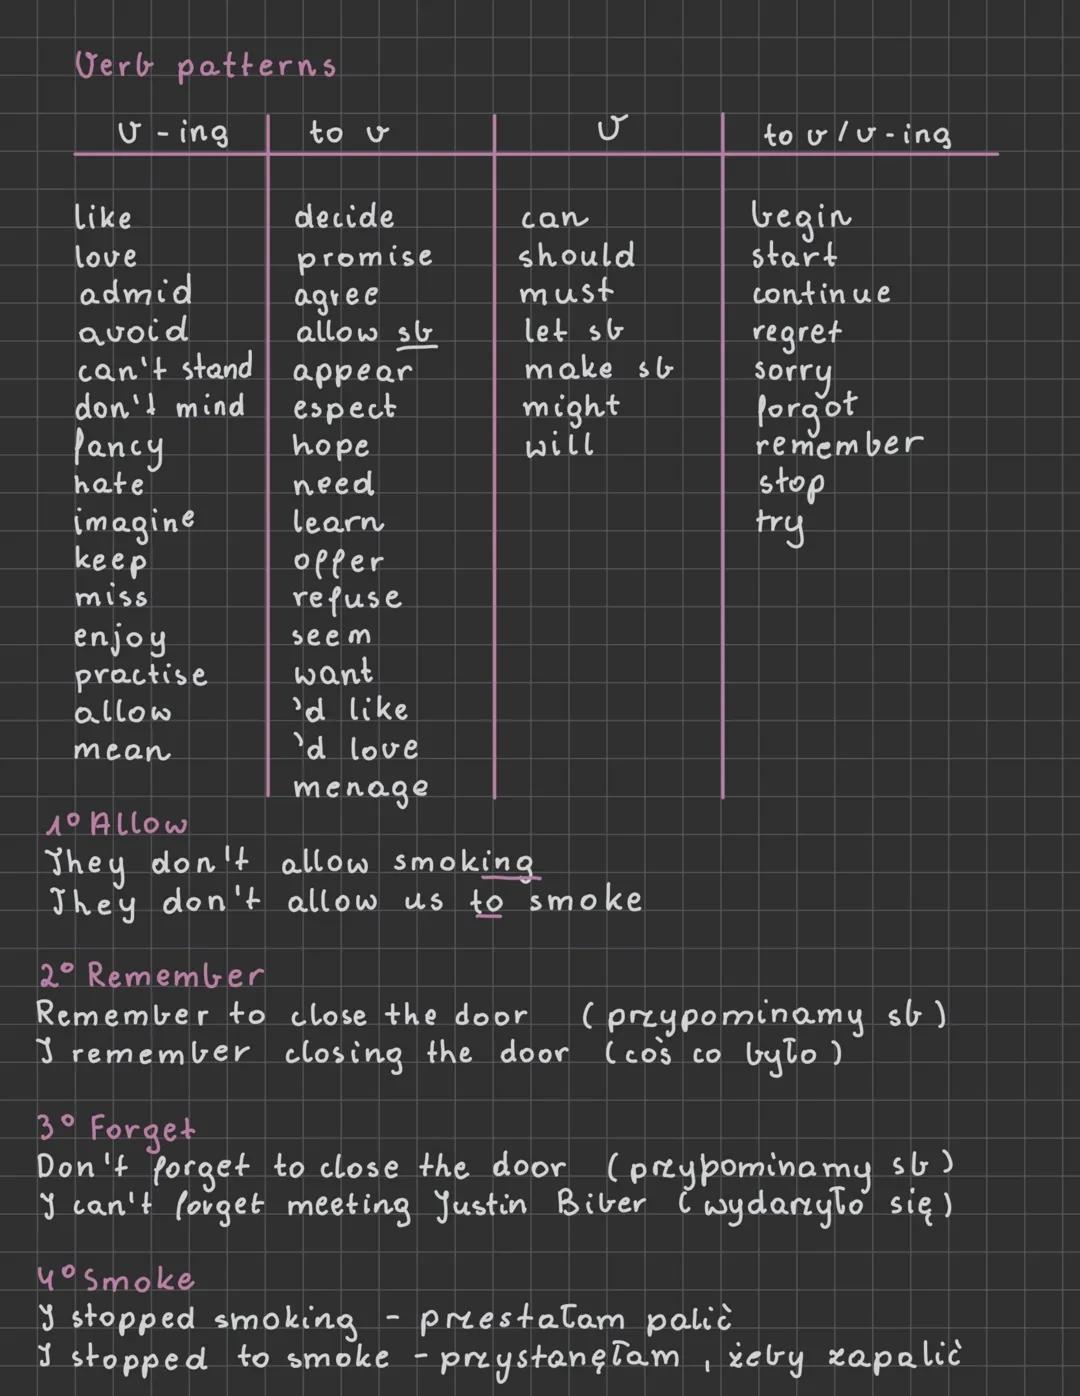 Verb patterns
v-ing to v v to v/v-ing
like decide can begin
love promise should start
admid agree must continue
avoid allow sb let sb regret
can't stand appear make sb sorry
don't mind espect might forgot
fancy hope will remember
hate need stop
imagine learn try
keep offer
miss refuse
enjoy seem
practise want
allow 'd like
mean 'd love
menage
1° Allow
They don't allow smoking
They don't allow us to smoke
2° Remember
Remember to close the door (przypominamy sb)
I remember closing the door (coś co było)
3° Forget
Don't forget to close the door (przypominamy sb)
I can't forget meeting Justin Biber (wydarzyło się)
4° Smoke
I stopped smoking - przestałam palić
I stopped to smoke - przystanęłam, żeby zapalić